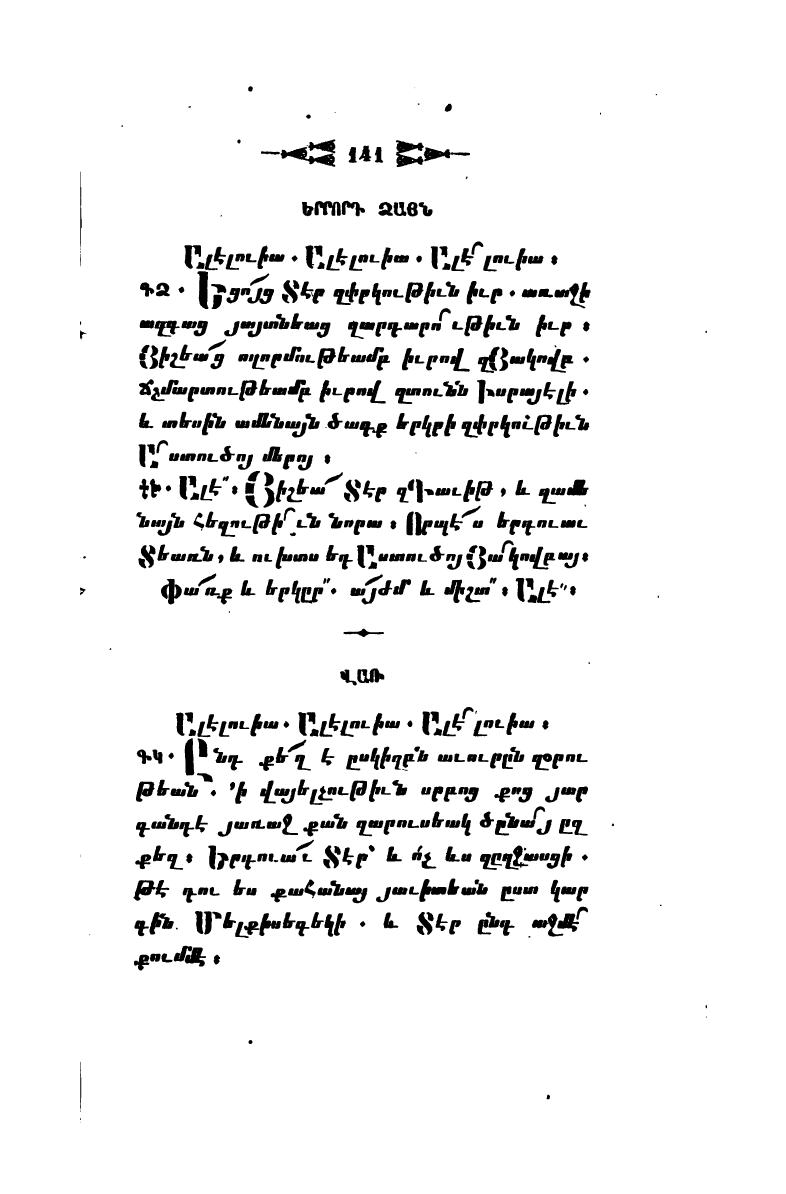 141
ԵՐՐՈՐԴ ՁԱՅՆ
Ալէլուիա. Ալէլուիա. Ալէ՜լուիա։
ԳՁ. Եցո՜յց Տէր զփրկութիւն իւր. առաջի
ազգաց յայտնեաց զարդարո՜ւթիւն իւր։
Յիշեա՜ց ողորմութեամբ իւրով զՅակովբ.
ճշմարտութեամբ իւրով զտունն Իսրայէլի.
և տեսին ամենայն ծագք երկրի զփրկութիւն
Ա՜ստուծոյ մերոյ։
Ալէ՞։ Յիշեա՜ Տէր զԴաւիթ, և զամե
նայն հեզութի՜ւն նորա։ Որպէ՜ս երդուաւ
Տեառն, և ուխտս եդ Աստուծոյ Յա՜կովբայ։
Փա՜ռք և երկըր՞. ա՜յժմ և միշտ՞։ Ալէ՞։
ՎԱՌ
Ալէլուիա. Ալէլուիա. Ալէ՜լուիա։
ԳԿ. Ընդ քե՜զ է ըսկիզբն աւուրըն զօրու
թեան՜. ՚ի վայելչութիւն սրբոց քոց յար
գանդէ յառաջ քան զարուսեակ ծընա՜յ ըզ
քեզ։ Երդուա՜ւ Տէր՝ և ո՛չ ևս զըղջասցի.
թէ դու ես քահանայ յաւիտեան ըստ կար
գին Մելքիսեդեկի. և Տէր ընդ աջմէ՜
քումմէ։